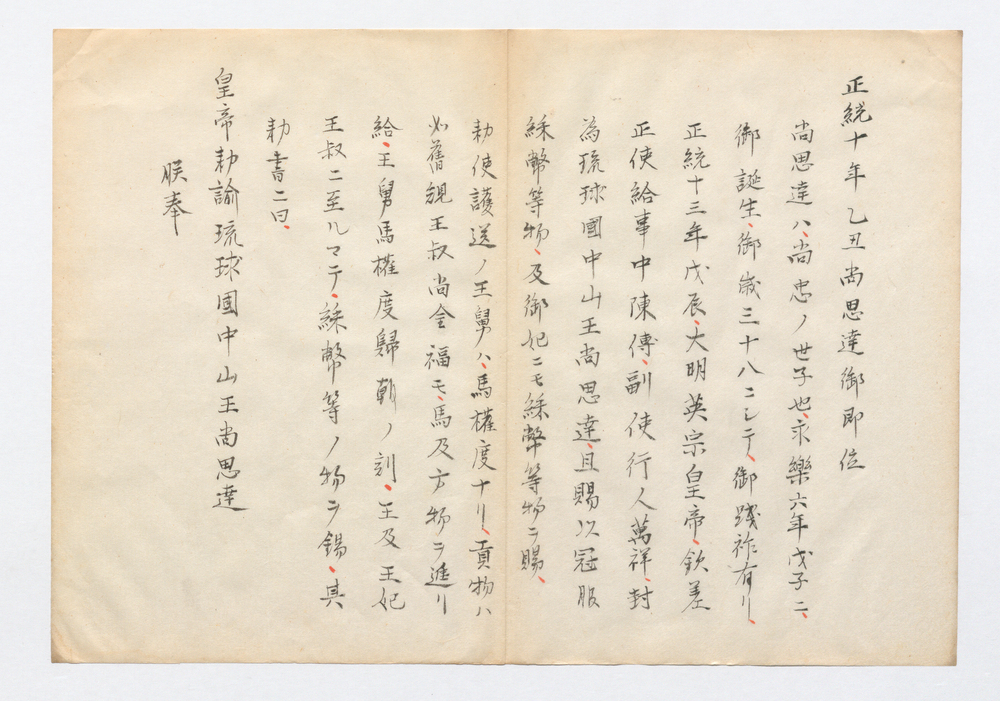 正統十年乙丑尚思達御即位
尚思達ハ、尚忠ノ世子也、永樂六年戊子ニ、
御誕生、御歳三十八ニシテ、御踐祚有リ、
正統十三年戊辰、大明英宗皇帝、欽差
正使給事中陳傅、副使行人萬祥、封
為琉球國中山王尚思達、且賜以冠服
綵幣等物、及御妃ニモ綵幣等物ヲ賜、
勅使護送ノ王舅ハ、馬權度ナリ、貢物ハ
如舊規王叔尚金福モ、馬及方物ヲ進リ
給、王舅馬權度歸朝ノ刻、王及王妃
王叔ニ至ルマテ、綵幣等ノ物ヲ錫、其
勅書ニ曰、
皇帝勅諭琉球國中山王尚思達
朕奉